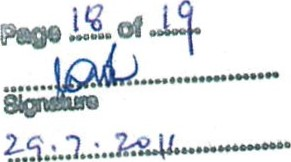 Page 18 of 19
Signature
29.7.2011